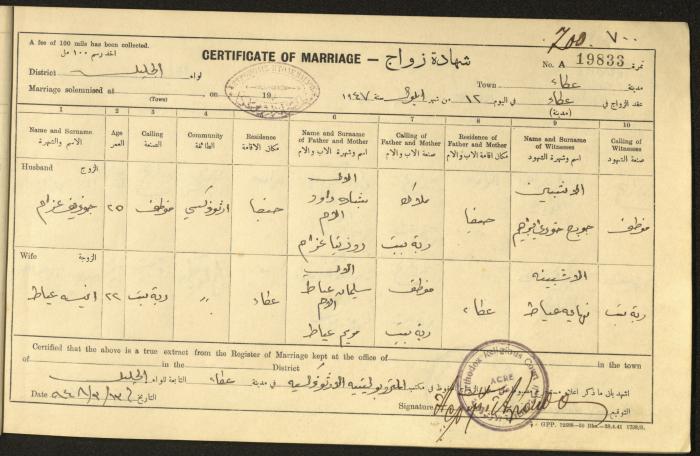 700. ٧٠٠
A fee of 100 mils has been collected.
اخذ رسم ١٠٠ مل
CERTIFICATE OF MARRIAGE — شهادة زواج
No. A 19833 نمرة
District لواء الجليل
Town مدينة عكاء
Marriage solemnised at on 19
(Town)
عقد الزواج في عكاء في اليوم ١٢ من شهر ايلول سنة ١٩٤٧
(مدينة)
1 2 3 4 5 6 7 8 9 10
Name and Surname
الاسم والشهرة
Age
العمر
Calling
الصنعة
Community
الطائفة
Residence
مكان الاقامة
Name and Surname of Father and Mother
اسم وشهرة الاب والام
Calling of Father and Mother
صنعة الاب والام
Residence of Father and Mother
مكان اقامة الاب والام
Name and Surname of Witnesses
اسم وشهرة الشهود
Calling of Witnesses
صنعة الشهود
Husband الزوج
جوزيف عزام
٢٥
موظف
ارثوذكسي
حيفا
الاب
داود
الام
عزام
ملاك
ربة بيت
حيفا
الاشبين
جورج
موظف
Wife الزوجة
انيسه عياط
٢٢
ربة بيت
〃
عكاء
الاب
سليمان عياط
الام
مريم عياط
موظف
ربة بيت
عكاء
الاشبينه
عياط
ربة بيت
Certified that the above is a true extract from the Register of Marriage kept at the office of in the town
of in the District
اشهد بان ما ذكر اعلاه في مكتب الارثوذكسية في مدينة عكاء التابعة للواء الجليل
Date التاريخ
Signature التوقيع
Orthodox Religious Court
ACRE
GPP. 12098—50 Bks.—28.4.41